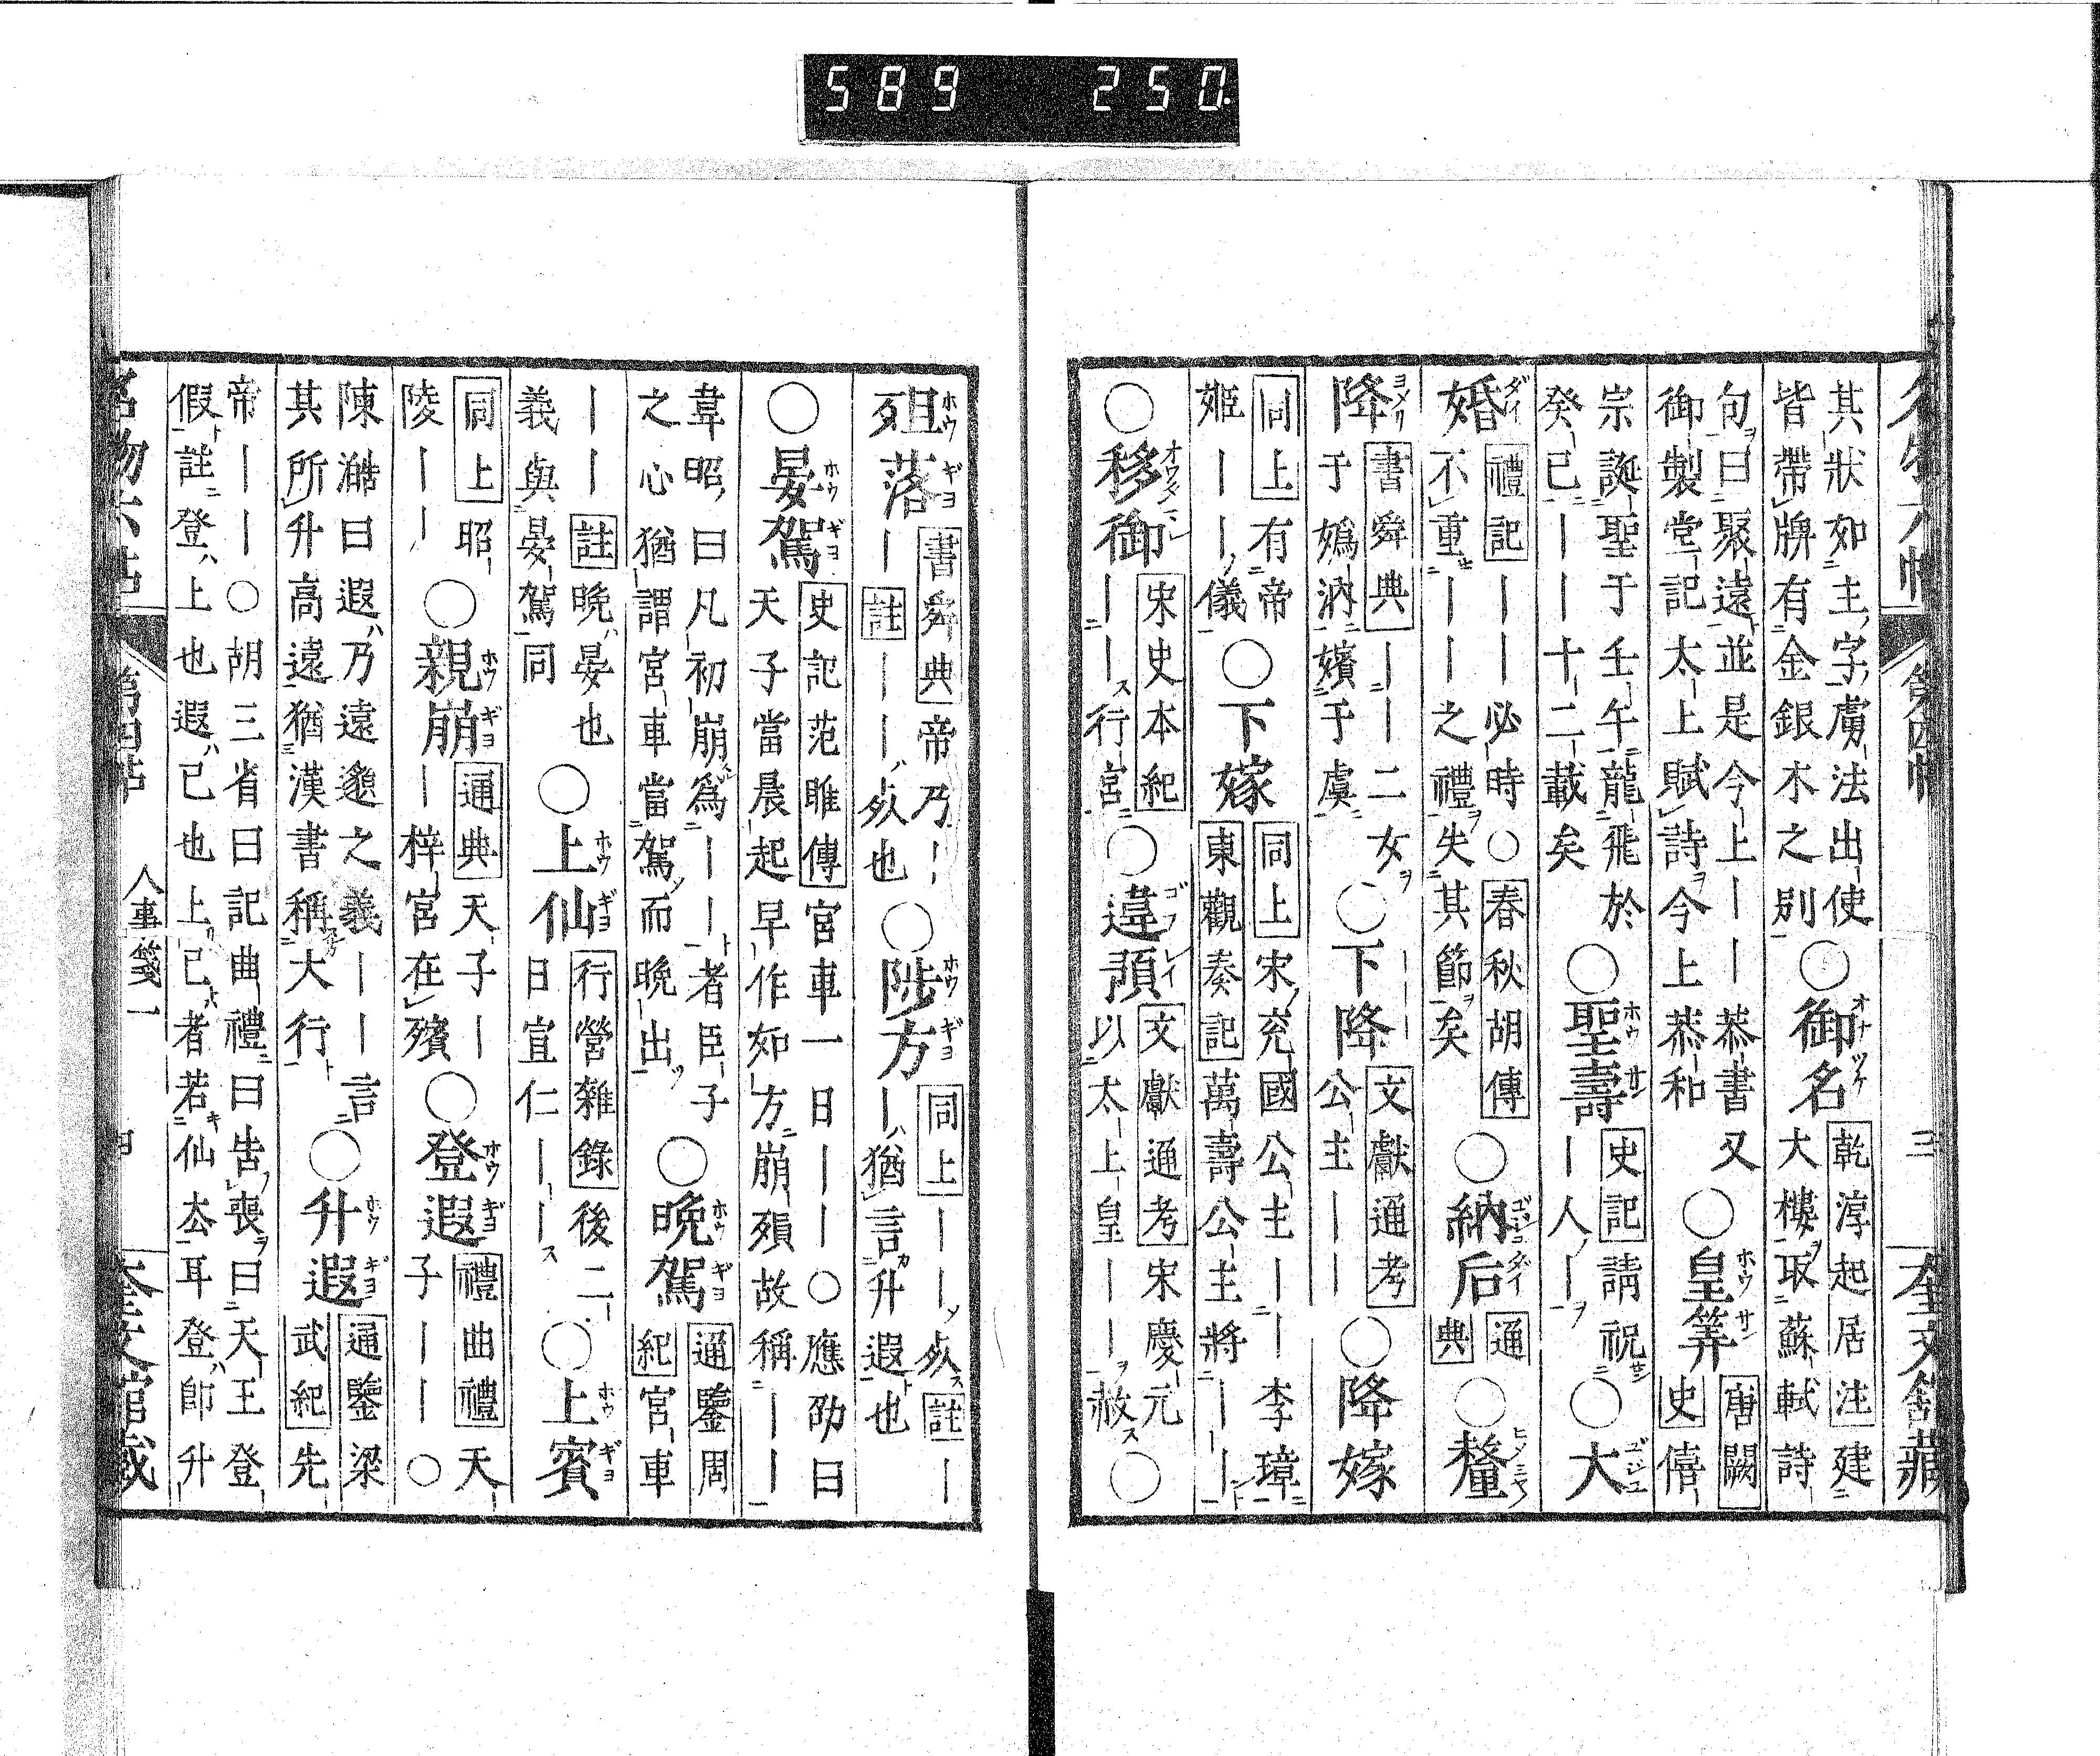 589 250
名物六帖 第四帖 三 奎文館藏
其狀如主字虜法出使
皆帶牌有金銀木之別
○御名 乾淳起居注 建
大樓取蘇軾詩
句曰聚遠並是今上｜｜恭書又
御製堂記太上賦詩今上恭和
○皇筭 唐闕史 僖
宗誕聖于壬午龍飛於
癸巳｜｜十二載矣
○聖壽 史記 請祝
｜人｜
○大
婚 禮記 ｜｜必時○春秋胡傳
不重｜｜之禮失其節矣
○納后 通典
○釐
降 書舜典 ｜｜二女
于嬀汭嬪于虞
○下降 文獻通考
公主｜｜
○降嫁
同上 有帝
姬｜｜儀
○下嫁 同上 宋兗國公主｜｜李瑋
東觀奏記 萬壽公主將｜｜
○移御 宋史本紀
｜｜行宮
○違預 文獻通考 宋慶元
以太上皇｜｜赦
○
殂落 書舜典 帝乃｜
｜註｜｜死也
○陟方 同上 ｜｜死註｜
｜猶言升遐也
○晏駕 史記范雎傳 宮車一日｜｜○應劭曰
天子當晨起早作如方崩殞故稱｜｜
韋昭曰凡初崩爲｜｜者臣子
之心猶謂宮車當駕而晚出
○晚駕 通鑒周紀 宮車
｜｜註晚晏也
義與晏駕同
○上仙 行營雜錄 後二
日宣仁｜｜
○上賓
同上 昭
陵｜｜
○親崩 通典 天子｜
｜梓宮在殯
○登遐 禮曲禮 天
子｜｜○
陳澔曰遐乃遠邈之義｜｜言
其所升高遠猶漢書稱大行
○升遐 通鑒梁武紀 先
帝｜｜○胡三省曰記曲禮曰告喪曰天王登
假註登上也遐已也上已者若仙去耳登卽升
名物六帖 第四帖 人事箋一 四 奎文館藏